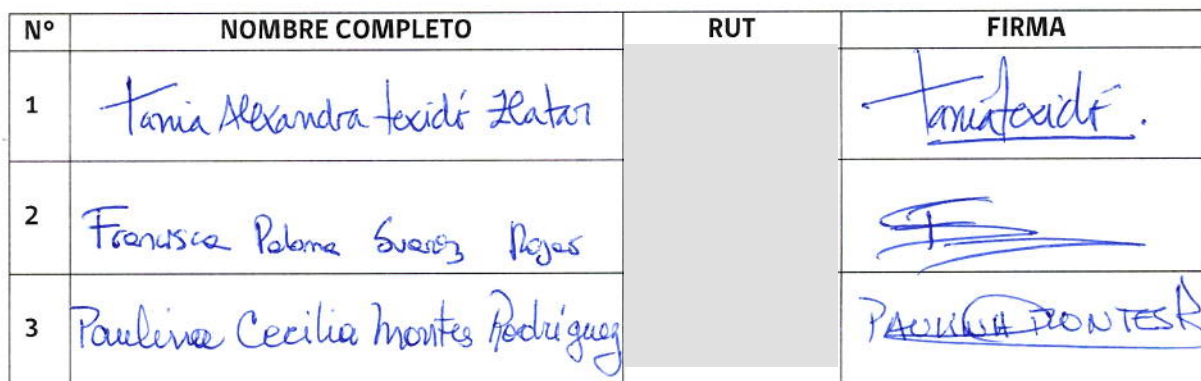 Nº NOMBRE COMPLETO RUT FIRMA
1 Tania Alexandra texidó Zlatar Taniatexidó.
2 Francisca Paloma Suarez Rojas
3 Paulina Cecilia Montes Rodríguez PAULINA MONTES R